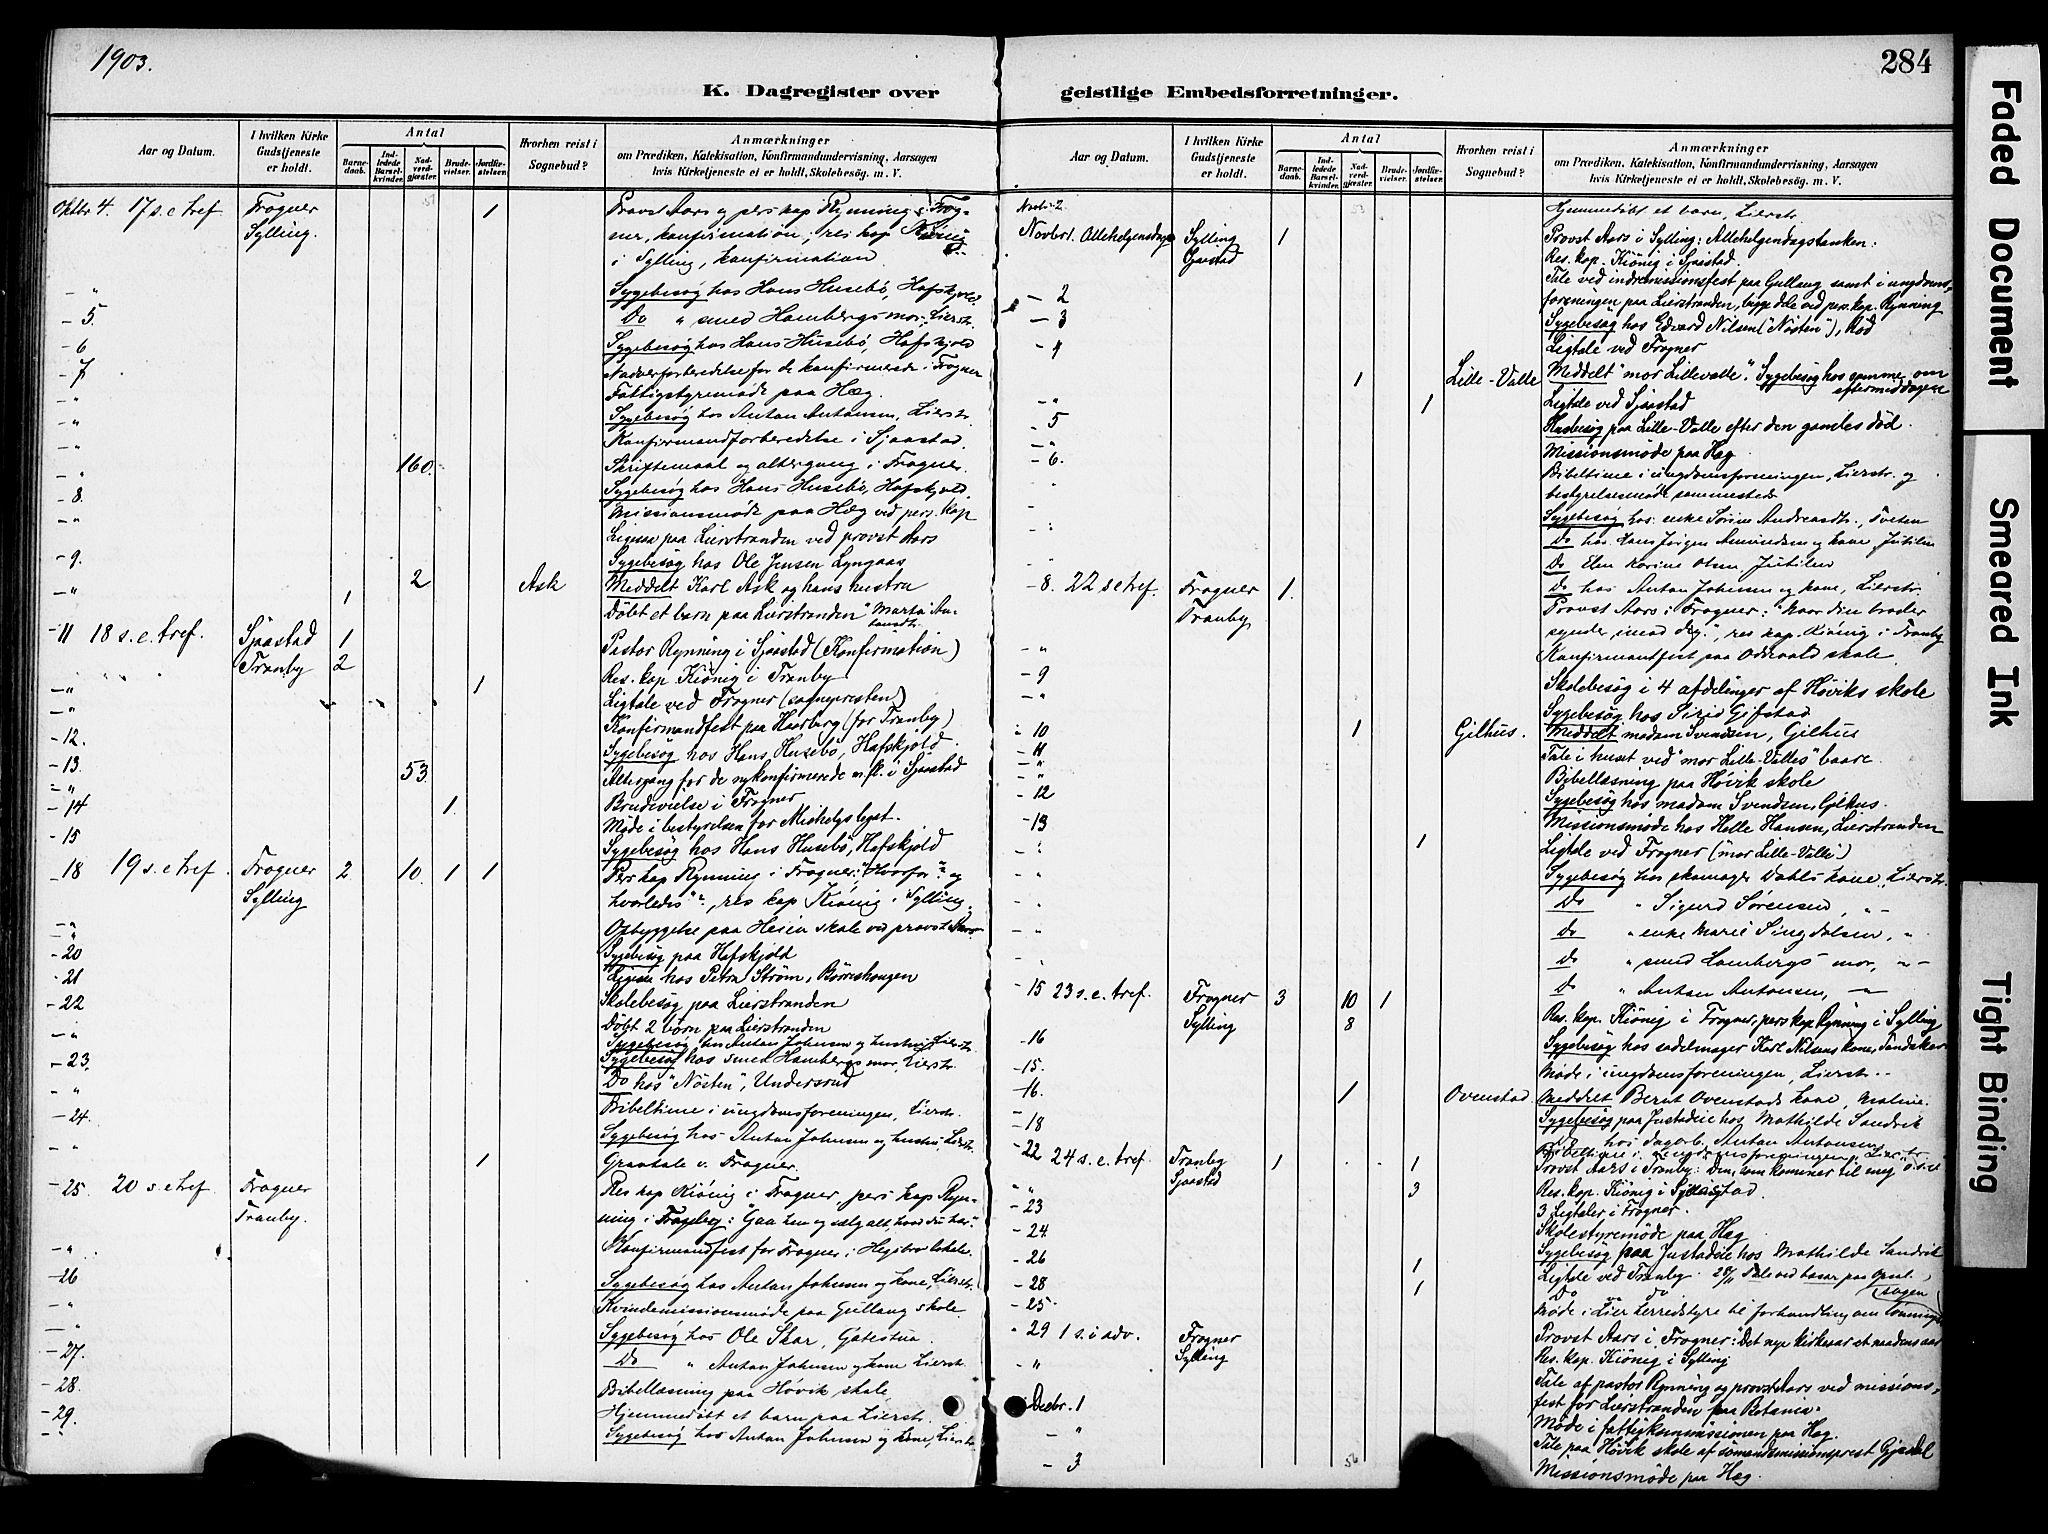 1903.
284
K. Dagregister over geistlige Embedsforretninger.
Aar og Datum.
I hvilken Kirke Gudstjeneste er holdt.
Antal
Barne-daab.
Ind-ledede Barsel-kvinder.
Nad-verd-gjæster.
Brude-vielser.
Jordfæ-stelser.
Hvorhen reist i Sognebud?
Anmærkninger
om Prædiken, Katekisation, Konfirmandundervisning, Aarsagen
hvis Kirketjeneste ei er holdt, Skolebesøg. m. V.
Oktbr 4. 17 s. e tref. Frogner 1 Provst Aars og pers kap Rynning i Frog-
Sylling. ner, konfirmation; res kap Kiönig
i Sylling, konfirmation.
- " Sygebesøg hos Hans Husebö, Hafskjold.
- 5. Do " smed Hambergs mor, Lierstr.
- 6 Sygebesøg hos Hans Husebö, Hafskjold
- 7 Nadverforberedelse for de konfirmerede i Frogner
- " Fattigstyremöde paa Hæg.
- " Sygebesøg hos Anton Antonsen, Lierstr.
- " Konfirmandforberedelse i Sjaastad.
- " 160. Skriftemaal og altergang i Frogner.
- 8. Sygebesøg hos Hans Husebö, Hafskjold.
- " Missionsmöde paa Hæg ved pers. kap
Ligreise paa Lierstranden ved provst Aars
- 9. Sygebesøg hos Ole Jensen Lyngaas
- " 2 Ask Meddelt Karl Ask og hans hustru
1 Döbt et barn paa Lierstranden "Marta An-
tonsdtr.
- 11 18 s. e. tref. Sjaastad 1 Pastor Rynning i Sjaastad (Konfirmation)
Tranby 2 Res. kap Kiönig i Tranby
- " 1 Ligtale ved Frogner (sognepresten)
- " Konfirmandfest paa Haarberg (for Tranby)
- 12. Sygebesøg hos Hans Husebö, Hafskjold.
- 13. 53. Altergang for de nykonfirmerede m. fl. i Sjaastad
- " 1. Brudevielse i Frogner
- 14 Möde i bestyrelsen for Mickelgs legat.
- 15 Sygebesøg hos Hans Husebö, Hafskjold
- 18 19 s. e tref. Frogner 2 10. 1 1 Pers kap Rynning i Frogner: "Hvorfor" og
Sylling "hvorledes", res kap Kiönig i Sylling.
- " Opbyggelse paa Heien skole ved provst Aars
- 20 Sygebesøg paa Hafskjold
- 21 Ligreise hos Petra Ström, Börreshaugen
- 22 Skolebesøg paa Lierstranden
Döbt 2 börn paa Lierstranden
- " Sygebesøg hos Anton Johnsen og hustru, Lierstr.
- 23. Sygebesøg hos smed Hambergs mor, Lierstr.
- " Do hos "Nösten", Undersrud
- 24. Bibeltime i ungdomsforeningen, Lierstr.
- " Sygebesøg hos Anton Johnsen og hustru, Lierstr.
1 Gravtale v. Frogner.
- 25. 20 s. e tref. Frogner Res kap Kiönig i Frogner, pers kap Ryn-
Tranby. ning i Tranby: "Gaa hen og sælg alt, hvad du har".
- " Konfirmandfest for Frogner i Hegsbro lokale.
- 26 Sygebesøg hos Anton Johnsen og kone, Lierstr.
- " Kvindemissionsmöde paa Gullaug skole.
- " Sygebesøg hos Ole Skar, Gatestua.
- 27. Do " Anton Johnsen og kone Lierstr.
- 28. Bibellæsning paa Hövik skole
- 29. Hjemmedöbt et barn paa Lierstr.
- " Sygebesøg hos Anton Johnsen og kone, Lierstr.
Aar og Datum.
I hvilken Kirke Gudstjeneste er holdt.
Antal
Barne-daab.
Ind-ledede Barsel-kvinder.
Nad-verd-gjæster.
Brude-vielser.
Jordfæ-stelser.
Hvorhen reist i Sognebud?
Anmærkninger
om Prædiken, Katekisation, Konfirmandundervisning, Aarsagen
hvis Kirketjeneste ei er holdt, Skolebesøg. m. V.
Novbr 2 Hjemmedöbt et barn, Lierstr.
Novbr 1. Allehelgensdag Sylling 1 Provst Aars i Sylling: Allehelgendagstanken:
Sjaastad Res. kap. Kiönig i Sjaastad.
- 2 Tale ved indremissionsfest paa Gullaug samt i ungdoms-
foreningen paa Lierstranden, begge dele ved pers. kap. Rynning
- 3 Sygebesøg hos Edvard Nilsen ("Nösten"), Rod
- 4 Ligtale ved Frogner
1 Lille-Valle Meddelt "mor Lillevalle". Sygebesøg hos samme om
eftermiddagen
- " 1 Ligtale ved Sjaastad
- 5 Husbesøg paa Lille-Valle efter den gamles död.
- " Missionsmöde paa Hæg.
- 6. Bibeltime i ungdomsforeningen, Lierstr. og
bestyrelsesmöde sammesteds
" Sygebesøg hos enke Sörine Andreasdtr., Tveten
" Do hos Hans Jörgen Amundsen og kone, Jutilen
" Do Elen Karine Olsen, Jutilen
Do hos Anton Johnsen og kone, Lierstr.
- 8. 22 s e tref. Frogner 1. Provst Aars i Frogner: "Naar din broder
Tranby synder imod dig", res kap. Kiönig i Tranby
- " Konfirmantfest paa Oddevald skole
- 9 Skolebesøg i 4 afdelinger af Höviks skole
- " Sygebesøg hos Sirid Gifstad
- 10 1 Gilhus. Meddelt madam Svendsen, Gilhus
- 11 Tale i huset ved "mor Lille-Valles" baare.
- " Bibellæsning paa Hövik skole
- 12 Sygebesøg hos madam Svendsen, Gilhus.
- 13 Missionsmöde hos Helle Hansen, Lierstranden
- " 1 Ligtale ved Frogner ("mor Lille-Valle")
- " Sygebesøg hos skomager Dahls kone, Lierstr.
- " Do " Sigurd Sörensen, " -
- " Do " enke Marie Singdalsen, "
- " Do " smed Hambergs mor, " -
Do " Anton Antonsen, " -
- 15 23 s. e. tref. Frogner 3 10 1 Res. kap. Kiönig i Frogner, pers kap Rynning i Sylling
Sylling 8
- 16 Sygebesøg hos sadelmager Karl Nilsens kone, Sandaker
- 15. Möde i ungdomsforeningen, Lierstr.
- 16. 1 Ovenstad. Meddelt Berit Ovenstads kone, Maline.
- 18 Sygebesøg paa Justadeie hos Mathilde Sandvik
Do hos dagarb. Anton Antonsen
Bibeltime i ungdomsforeningen, Lierstr.
- 22 24 s. e. tref. Tranby 1 1 Provst Aars i Tranby: Den, som kommer til mig o. s. v.
Sjaastad Res. kap. Kiönig i Sjaastad.
" " 3 3 Ligtaler i Frogner.
- 23 Skolestyremöde paa Hæg
- 24. Sygebesøg paa Justadeie hos Mathilde Sandvik
- 26 1 Ligtale ved Tranby. 28/11 Tale ved basar paa Opsal.
- 28 1 Do Do
- 25. Möde i Lier herredstyre til forhandling om
- 29 1 s. i adv. Frogner Provst Aars i Frogner: "Det nye kirkeaar et naadens aar
Sylling Res. kap. Kiönig i Sylling
- " Tale af pastor Rynning og provst Aars ved missions-
fest for Lierstranden paa Betania.
Decbr. 1 Möde i fattigkommissionen paa Hæg.
- " Tale paa Hövik skole af sömandsmissionsprest Gjerdal
- 3 Missionsmöde paa Hæg.
Faded Document
Smeared Ink
Tight Binding